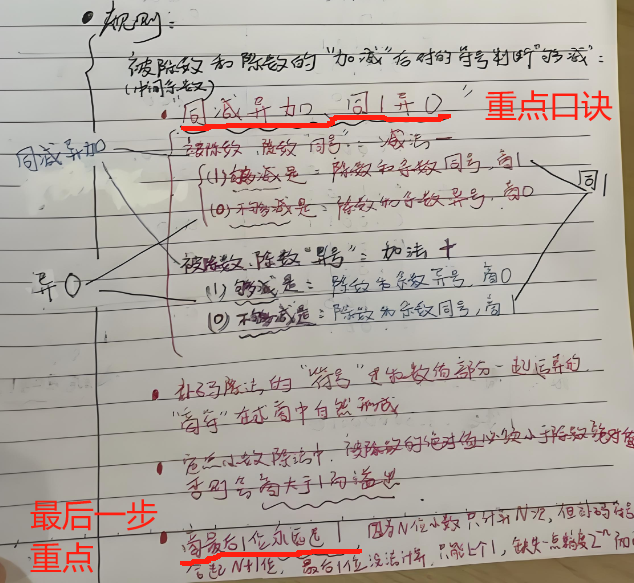 规则:
被除数和除数的"加减"后对的符号判断"够减":
(中间余数)
"同减异加、同1异0"
重点口诀
同减异加
被除数、除数"同号": 减法 一
(1) 够减是: 除数和余数同号, 商1
(0) 不够减是: 除数和余数异号, 商0
同1
被除数、除数"异号": 加法 +
异0
(1) 够减是: 除数和余数异号, 商0
(0) 不够减是: 除数和余数同号, 商1
补码除法的"符号"也和数值部分一起运算的
"商符"在求商中自然形成
定点小数除法中, 被除数的绝对值必须小于除数绝对值
否则 商大于1而溢出
最后一步
重点
商最后1位永远是1 因为N位小数只计算N次, 但补码符号
合起N+1位, 最后1位没法计算, 只能上个1, 缺失一点精度2⁻ⁿ而